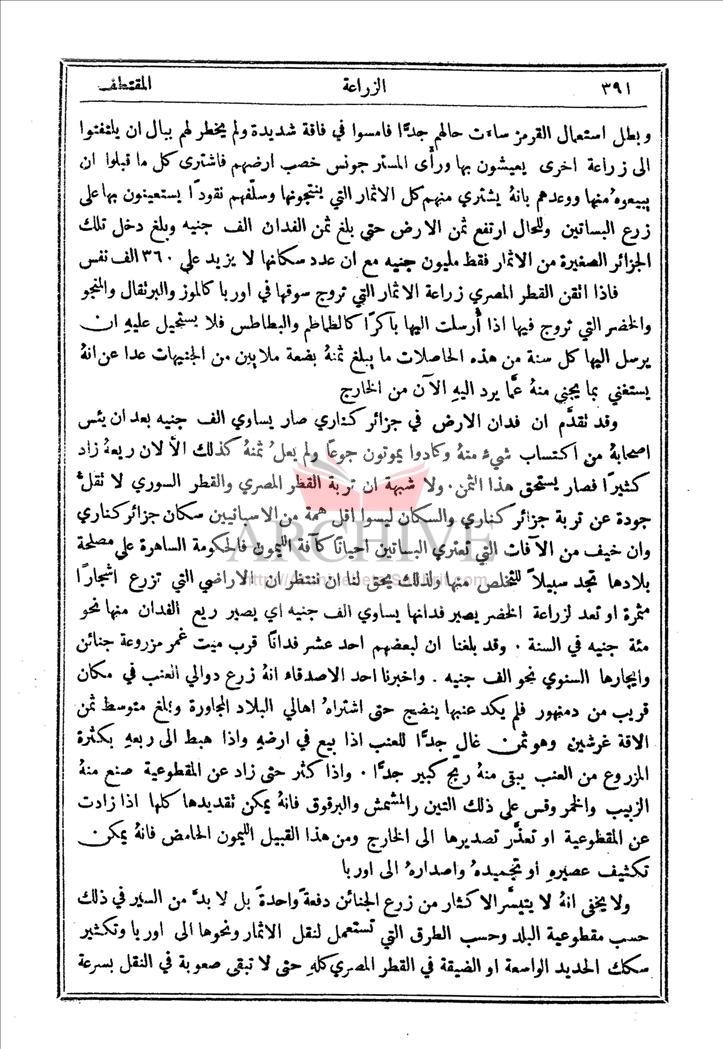 ٣٩١ الزراعة المقتطف
وبطل استعمال القرمز ساءت حالهم جدًّا فامسوا في فاقة شديدة ولم يخطر لهم ببال ان يلتفتوا
الى زراعة اخرى يعيشون بها ورأى المستر جونس خصب ارضهم فاشترى كل ما قبلوا ان
يبيعوهُ منها ووعدهم بانهُ يشتري منهم كل الاثمار التي ينتجونها وسلّفهم نقودًا يستعينون بها على
زرع البساتين وللحال ارتفع ثمن الارض حتى بلغ ثمن الفدان الف جنيه وبلغ دخل تلك
الجزائر الصغيرة من الاثمار فقط مليون جنيه مع ان عدد سكانها لا يزيد على ٣٦٠ الف نفس
فاذا اتقن القطر المصري زراعة الاثمار التي تروج سوقها في اوربا كالموز والبرتقال والمنجو
والخضر التي تروج فيها اذا أُرسلت اليها باكرًا كالطماطم والبطاطس فلا يستحيل عليهِ ان
يرسل اليها كل سنة من هذه الحاصلات ما يبلغ ثمنهُ بضعة ملايين من الجنيهات عدا عن انهُ
يستغني بما يجني منهُ عمَّا يرد اليهِ الآن من الخارج
وقد نقدَّم ان فدان الارض في جزائر كناري صار يساوي الف جنيه بعد ان يئس
اصحابهُ من اكتساب شيءٍ منهُ وكادوا يموتون جوعًا ولم يعلُ ثمنهُ كذلك الاَّ لان ريعهُ زاد
كثيرًا فصار يستحق هذا الثمن. ولا شبهة ان تربة القطر المصري والقطر السوري لا نقلُّ
جودة عن تربة جزائر كناري والسكان ليسوا اقل همة من الاسبانيين سكان جزائر كناري
وان خيف من الآفات التي تعتري البساتين احيانًا كآفة الليمون فالحكومة الساهرة على مصلحة
بلادها تجد سبيلاً للتخلص منها ولذلك يحق لنا ان ننتظر ان الاراضي التي تزرع اشجارًا
مثمرة او تعد لزراعة الخضر يصير فدانها يساوي الف جنيه اي يصير ريع الفدان منها نحو
مئة جنيه في السنة. وقد بلغنا ان لبعضهم احد عشر فدانًا قرب ميت غمر مزروعة جنائن
وايجارها السنوي نحو الف جنيه. واخبرنا احد الاصدقاء انهُ زرع دوالي العنب في مكان
قريب من دمنهور فلم يكد عنبها ينضج حتى اشتراهُ اهالي البلاد المجاورة وبلغ متوسط ثمن
الاقة غرشين وهو ثمن غالٍ جدًّا للعنب اذا بيع في ارضهِ واذا هبط الى ربعهِ بكثرة
المزروع من العنب يبقى منهُ ربح كبير جدًّا. واذا كثر حتى زاد عن المقطوعية صنع منهُ
الزبيب والخمر وقس على ذلك التين والمشمش والبرقوق فانهُ يمكن تقديدها كلها اذا زادت
عن المقطوعية او تعذَّر تصديرها الى الخارج ومن هذا القبيل الليمون الحامض فانهُ يمكن
تكثيف عصيرهِ او تجميدهُ واصدارهُ الى اوربا
ولا يخفى انهُ لا يتيسَّر الاكثار من زرع الجنائن دفعةً واحدةً بل لا بدَّ من السير في ذلك
حسب مقطوعية البلد وحسب الطرق التي تستعمل لنقل الاثمار ونحوها الى اوربا وتكثير
سكك الحديد الواسعة او الضيقة في القطر المصري كلهِ حتى لا تبقى صعوبة في النقل بسرعة
ARCHIVE